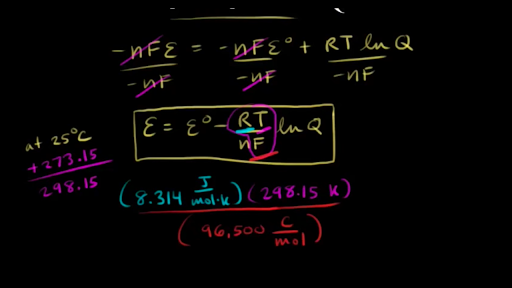 -nFε = -nFε° + RT ln Q
-nF -nF -nF
ε = ε° - RT/nF ln Q
at 25°C
+273.15
298.15
(8.314 J/mol·K)(298.15 K)
(96,500 C/mol)